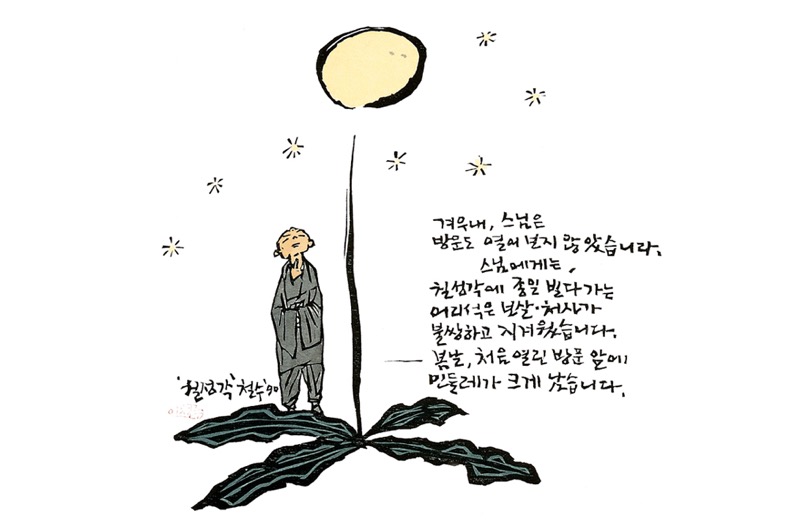 겨우내, 스님은
방문도 열어 보지 않았습니다.
스님에게는,
칠성각에 종일 빌다가는
어리석은 보살·처사가
불쌍하고 지겨웠습니다.
봄날, 처음 열린 방문 앞에
민들레가 크게 났습니다.
'칠성각' 철수 '90